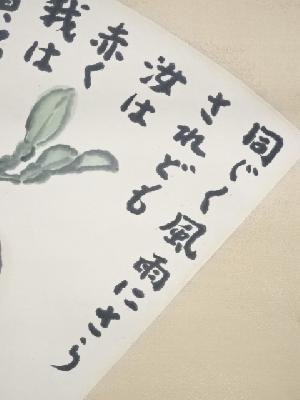 同じく風雨にさら
されども
汝は
赤く
我は